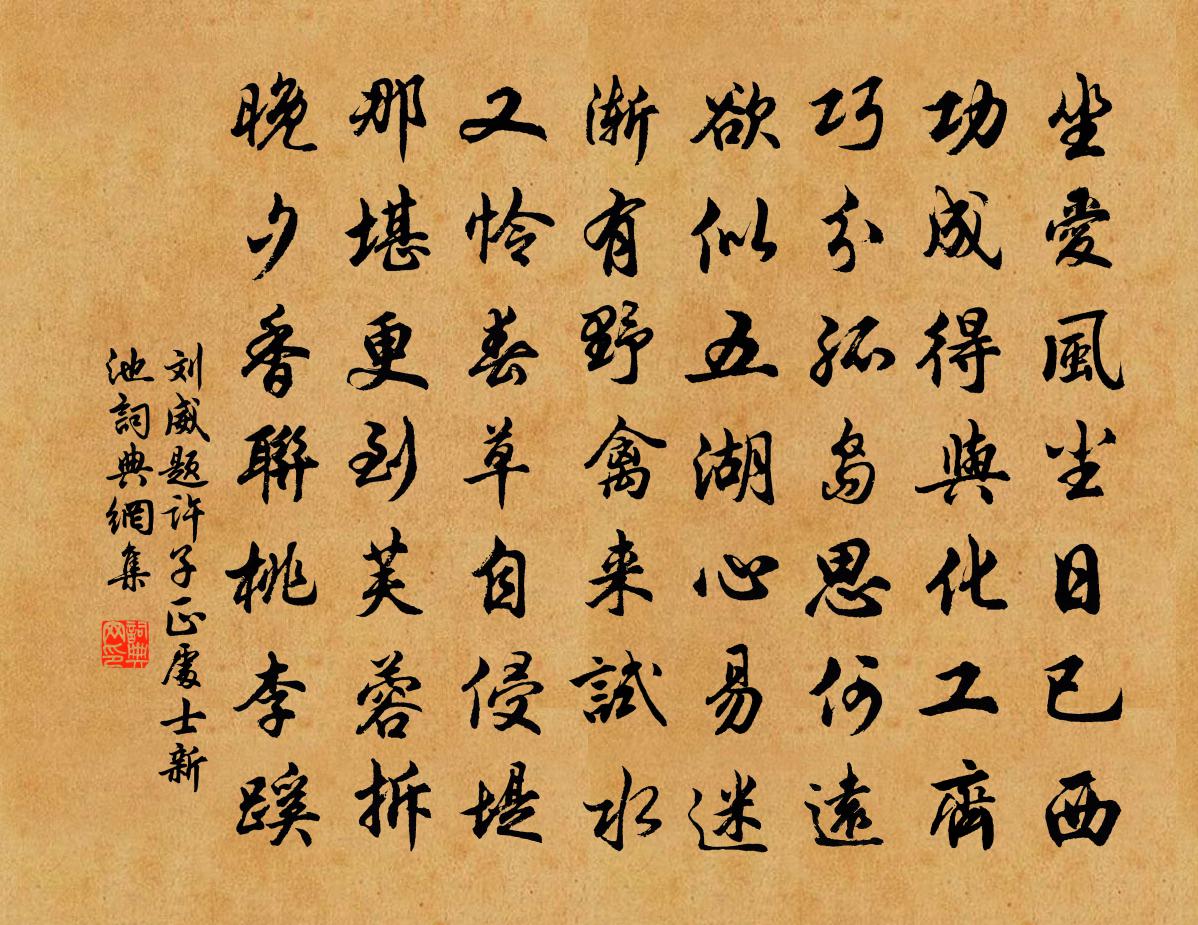 坐愛風尘日已西
功成得與化工齊
巧分孤島思何遠
欲似五湖心易迷
漸有野禽来試水
又怜春草自侵堤
那堪更到芙蓉拆
晚夕香聯桃李蹊
刘威题许子正處士新
池詞典網集
詞典
网印